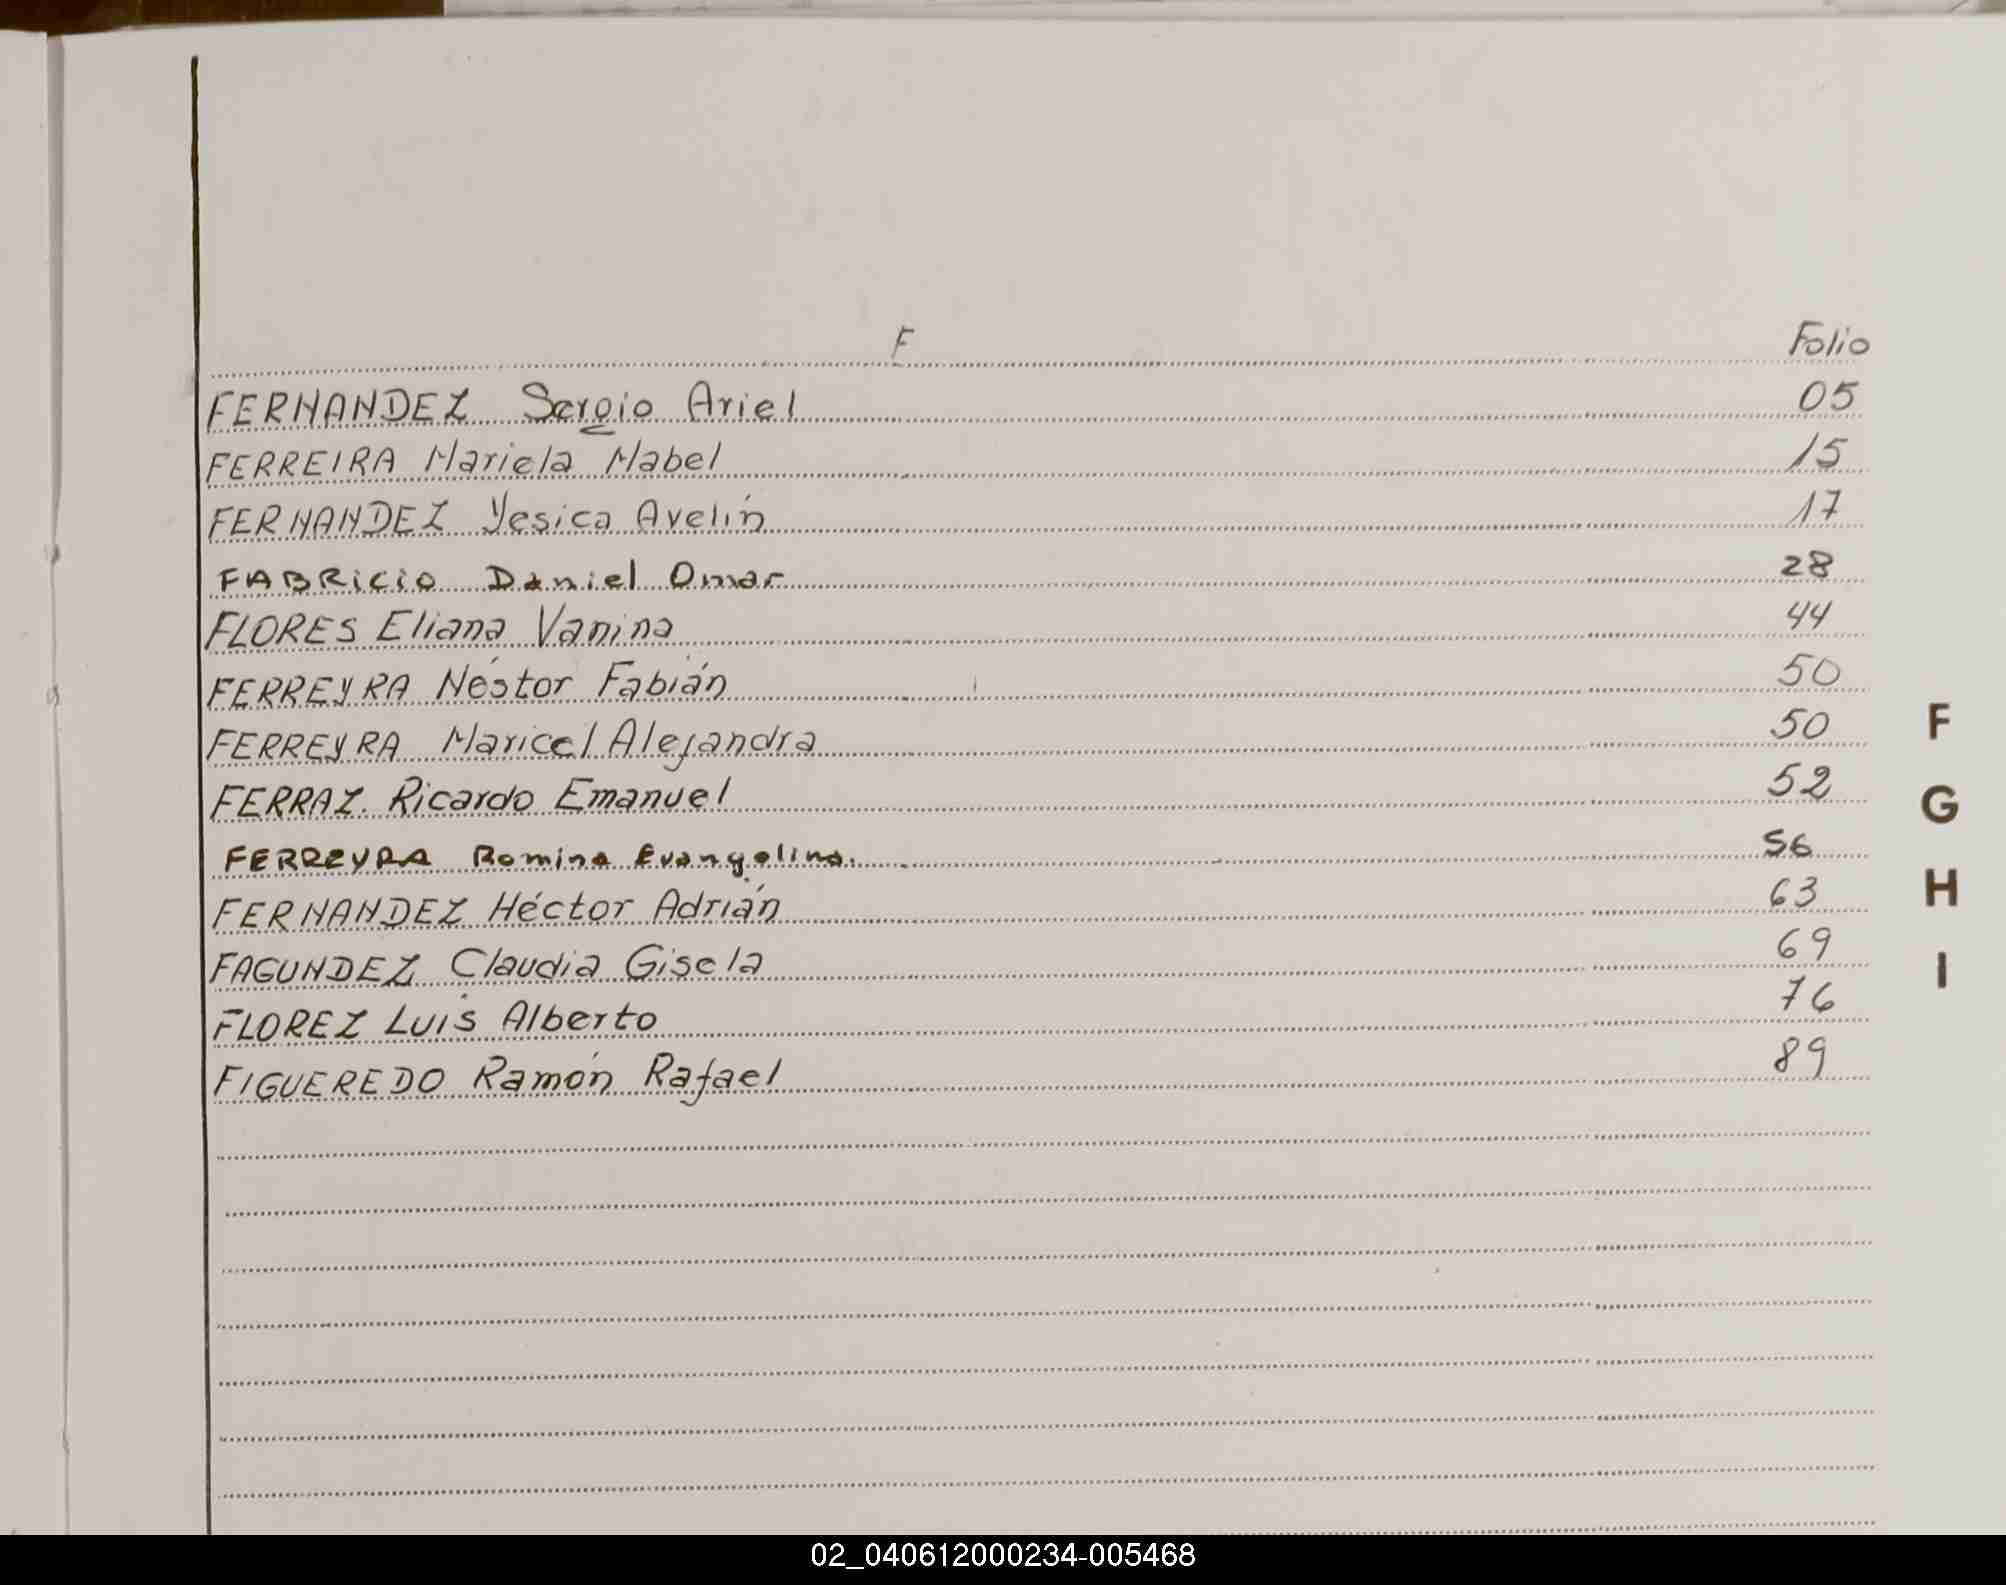 F Folio
FERNANDEZ Sergio Ariel 05
FERREIRA Mariela Mabel 15
FERNANDEZ Yesica Avelín 17
FABRICIO Daniel Omar 28
FLORES Eliana Vanina 44
FERREYRA Néstor Fabián 50
FERREYRA Maricel Alejandra 50
FERRAZ Ricardo Emanuel 52
FERREYRA Romina Evangelina. 56
FERNANDEZ Héctor Adrián 63
FAGUNDEZ Claudia Gisela 69
FLOREZ Luis Alberto 76
FIGUEREDO Ramón Rafael 89
F
G
H
I
02_040612000234-005468